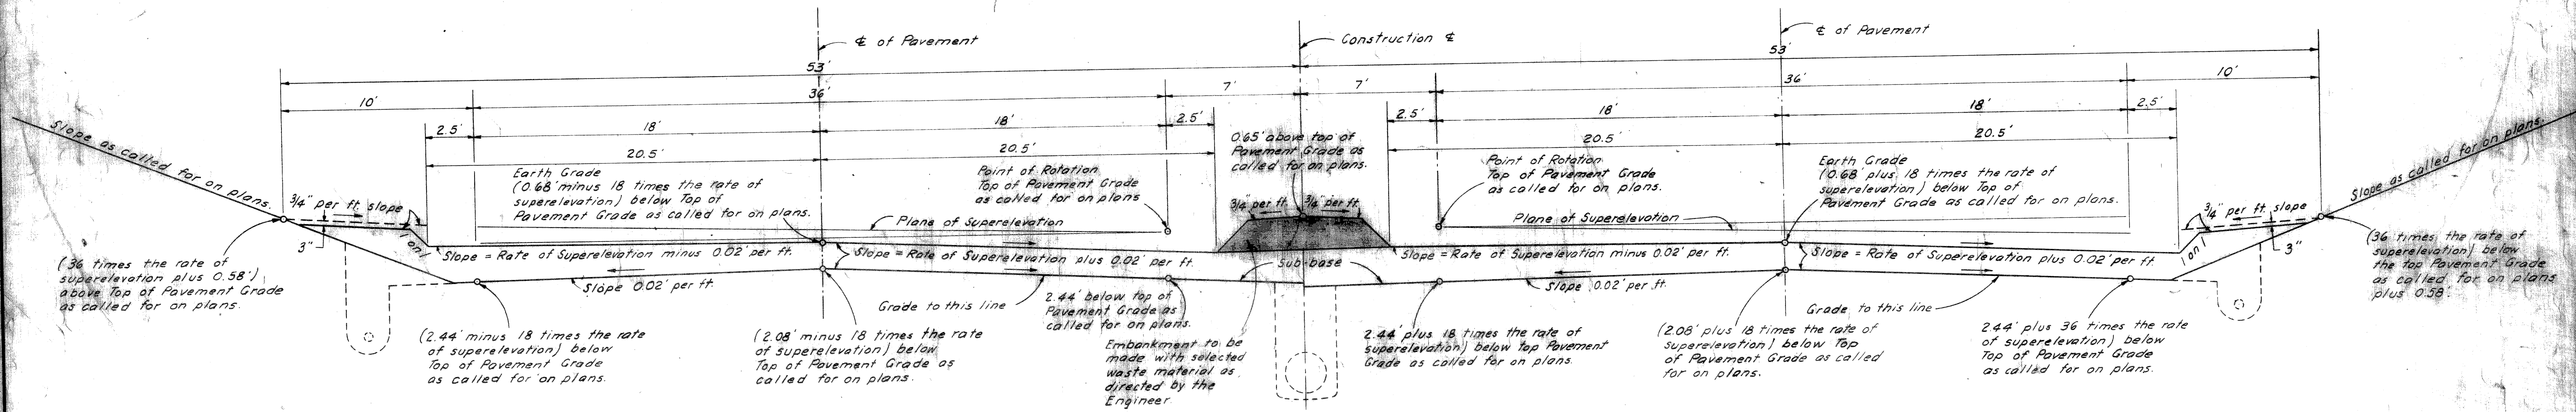 ℄ of Pavement
Construction ℄
℄ of Pavement
53'
53'
7'
7'
10'
36'
36'
10'
2.5'
18'
18'
2.5'
2.5'
18'
18'
2.5'
20.5'
20.5'
20.5'
20.5'
Slope as called for on plans.
3/4" per ft. slope
3"
1 on 1
Earth Grade
(0.68' minus 18 times the rate of
superelevation) below Top of
Pavement Grade as called for on plans.
Point of Rotation
Top of Pavement Grade
as called for on plans
Plane of Superelevation
0.65' above top of
Pavement Grade as
called for on plans.
3/4" per ft.
3/4" per ft.
Point of Rotation
Top of Pavement Grade
as called for on plans.
Plane of Superelevation
Earth Grade
(0.68' plus 18 times the rate of
superelevation) below Top of
Pavement Grade as called for on plans.
Slope as called for on plans.
3/4" per ft. slope
3"
1 on 1
(36 times the rate of
superelevation plus 0.58')
above Top of Pavement Grade
as called for on plans.
Slope = Rate of Superelevation minus 0.02' per ft.
Slope = Rate of Superelevation plus 0.02' per ft.
Sub-base
Slope = Rate of Superelevation minus 0.02' per ft.
Slope = Rate of Superelevation plus 0.02' per ft.
(36 times the rate of
superelevation) below
the top Pavement Grade
as called for on plans
plus 0.58'.
Slope 0.02' per ft.
Grade to this line
2.44' below top of
Pavement Grade as
called for on plans.
Slope 0.02' per ft.
Grade to this line
(2.44' minus 18 times the rate
of superelevation) below
Top of Pavement Grade
as called for on plans.
(2.08' minus 18 times the rate
of superelevation) below
Top of Pavement Grade as
called for on plans.
Embankment to be
made with selected
waste material as
directed by the
Engineer
2.44' plus 18 times the rate of
superelevation) below top Pavement
Grade as called for on plans.
(2.08' plus 18 times the rate of
superelevation) below Top
of Pavement Grade as called
for on plans.
2.44' plus 36 times the rate
of superelevation) below
Top of Pavement Grade
as called for on plans.